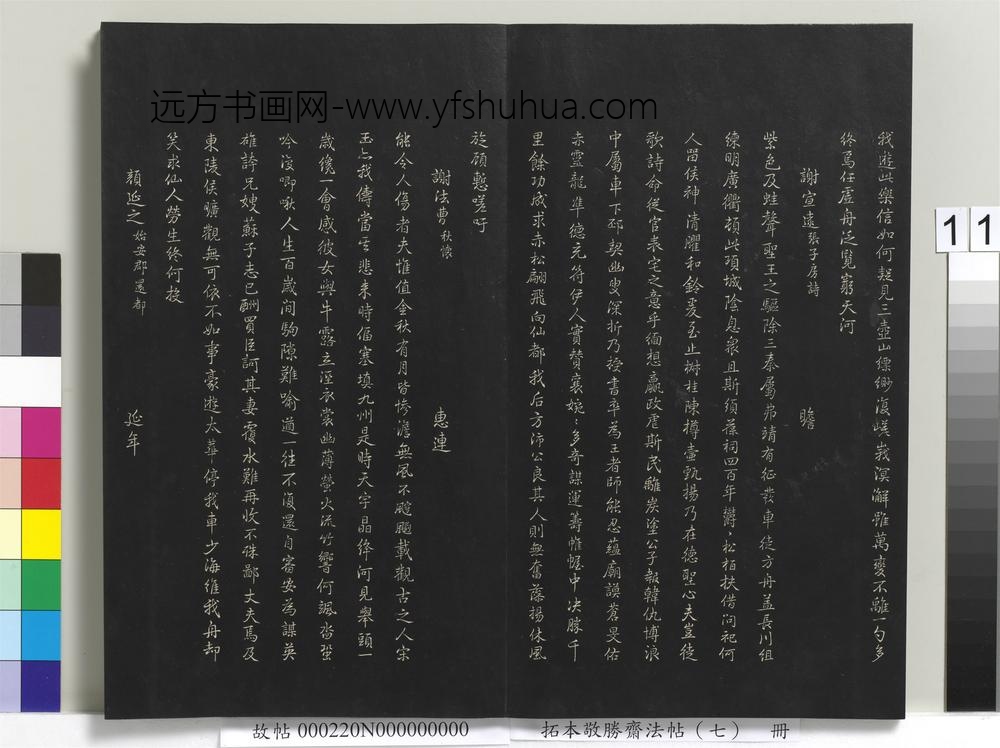 我遊此樂信如何疑見三壺山縹緲復嵯峩溟澥雖萬變不離一勺多
終焉任虛舟泛覽窮天河
謝宣遠 張子房詩 瞻
紫色及蛙聲聖王之驅除三秦屬弗靖有征發車徒方舟蓋長川組
練明廣衢頓此項城陰息衆且斯須葆祠四百年鬱〻松柏扶借問祀何
人留侯神清曜和鈴爰至止樹桂陳樽壺觀揚乃在德聖心夫豈徒
歌詩命從官表宅之意乎緬想嬴政虐斯民離炭塗公子報韓仇博浪
中屬車下邳契幽叟深折乃授書卒為王者師能忍蘊廟謨蒼旻佑
赤靈龍準德元符伊人實贊襄婉〻多奇謀運籌帷幄中决勝千
里餘功成求赤松翩飛向仙都我后方沛公良其人則無奮藻揚休風
旋顧慙嗟吁
謝法曹 秋懷 惠連
能令人傷者夫惟值金秋有月皆慘澹無風不颼飀載觀古之人宋
玉
歲儵一會感彼女與牛露立溼衣裳幽薄螢火流竹響何颯沓蛩
吟復啣啾人生百歲間駒隙難喻適一往不復還自審安為謀英
雄誇兄嫂蘇子志已酬買臣訶其妻覆水難再收不殊鄙丈夫焉及
東陵侯曠觀無可依不如事豪遊太華停我車少海維我舟却
笑求仙人勞生終何投
顏延之 始安郡還都 延年
故帖 000220N000000000
拓本敬勝齋法帖（七） 冊
远方书画网-www.yfshuhua.com
11